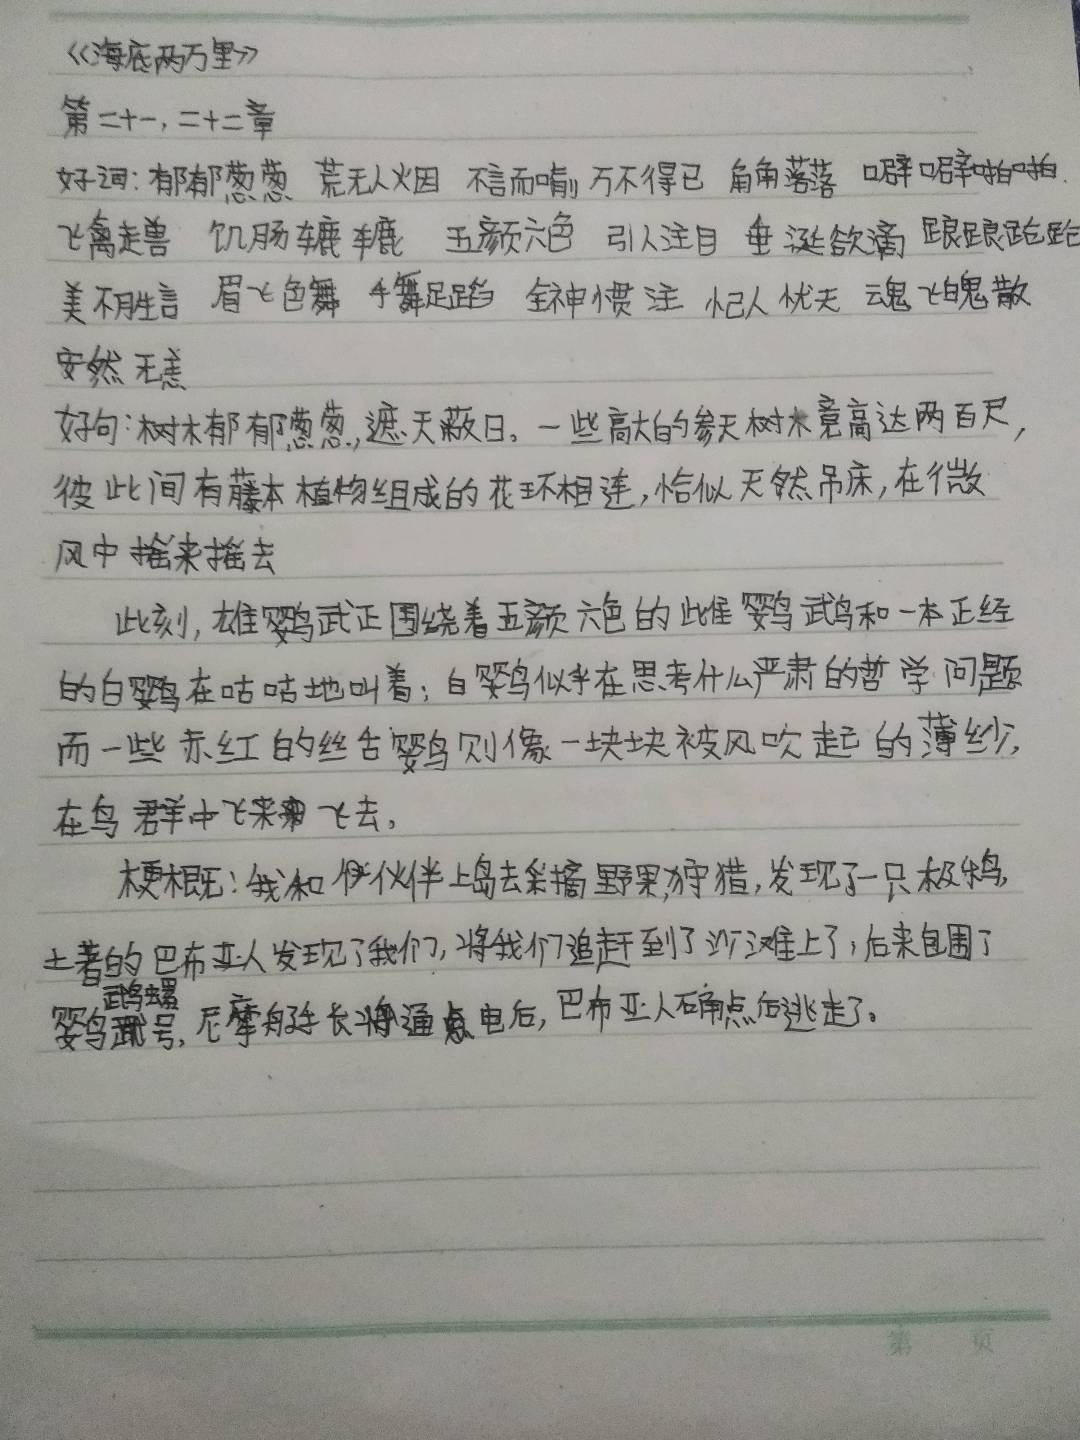 《海底两万里》
第二十一，二十二章
好词：郁郁葱葱 荒无人烟 不言而喻 万不得已 角角落落 噼噼啪啪
飞禽走兽 饥肠辘辘 五颜六色 引人注目 垂涎欲滴 踉踉跄跄
美不胜言 眉飞色舞 手舞足蹈 全神惯注 杞人忧天 魂飞魄散
安然无恙
好句：树木郁郁葱葱，遮天蔽日。一些高大的参天树木竟高达两百尺，
彼此间有藤本植物组成的花环相连，恰似天然吊床，在微
风中摇来摇去
此刻，雄鹦武正围绕着五颜六色的雌鹦鹉和一本正经
的白鹦在咕咕地叫着；白鹦似乎在思考什么严肃的哲学问题
而一些赤红的丝舌鹦则像一块块被风吹起的薄纱，
在鸟群中飞来飞去。
梗概：我和伙伴上岛去采摘野果，狩猎，发现了一只极鸟，
土著的巴布亚人发现了我们，将我们追赶到了沙滩上了，后来包围了
鹦鹉螺号，尼摩船长将通电后，巴布亚人碰点后逃走了。
第 页